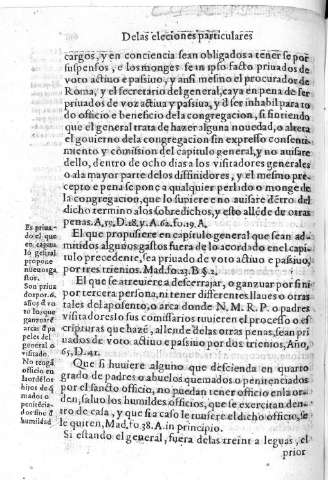 De las eleciones particulares
cargos, y en conciencia sean obligados a tenerse por
suspensos, e los monges sean ipso facto priuados de
voto actiuo e passiuo, y ansi mesmo el procurador de
Roma, y el secretario del general, caya en pena de ser
priuados de voz actiua y passiua, y d̃ ser inhabil para to
do officio e beneficio dela congregacion, si sintiendo
que el general trata de hazer alguna nouedad, o altera
el gouierno dela congregacion sin expresso consenti-
miento y comission del capitulo general, y no auisare
dello, dentro de ocho dias a los visitadores generales
o ala mayor parte delos diffinidores, y el mesmo pre-
cepto e pena se pone a qualquier perlado o monge de
la congregacion, que lo supiere e no auisare dentro del
dicho termino alos sobredichos, y esto allẽde de otras
penas.
El que propusiere en capitulo general que sean ad-
mitidos algunos gastos fuera de lo acordado en el capi
tulo precedente, sea priuado de voto actiuo e passiuo,
por tres trienios. Mad. fo. 23. B § 2.
El que se atreuiere a descerrajar, o ganzuar por si ni
por tercera persona, ni tener differentes llaues o otras
tales del aposento, o arca donde N. M. R. P. o padres
visitadores lo sus comissarios tuuieren el processo o es-
cripturas que hazẽ, allende delas otras penas, sean pri
uados de voto actiuo e passiuo por dos trienios, Año,
65, D. 41.
Que si huuiere alguno que descienda en quarto
grado de padres o abuelos quemados o penitenciados
por el sancto officio, no puedan tener officio en la or-
den, saluo los humildes officios, que se exercitan den-
tro de casa, y que si a caso le tuuiere el dicho officio, se
le quiten, Mad, fo 38. A. in principio.
Si estando el general, fuera delas treinta leguas, el
prior
Es priua-
do el que
en capitu
lo gẽeral
propone
nueuos ga
stos.
Son priua
dos por. 6.
años d̃ vo
to los que
ganzuarẽ
arcas d̃ pa
peles del
general o
visitador.
No tẽgã
officio en
la ordẽ los
hijos de q̃
mados o
penitẽcia-
dos sino d̃
humildad